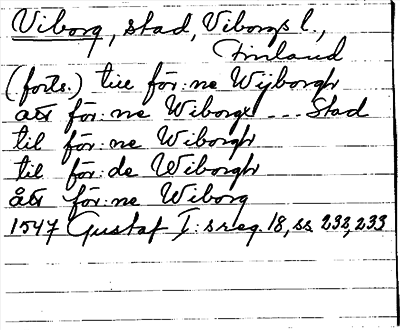 Viborg, stad, Viborgs l.,
Finland
(forts.) till för:ne Wijborgh
att för:ne Wiborgx --- Stad
til för:ne Wiborgh
til för:de Wiborgh
ått för:ne Wiborg
1547 Gustaf I:s reg. 18, ss. 232, 233